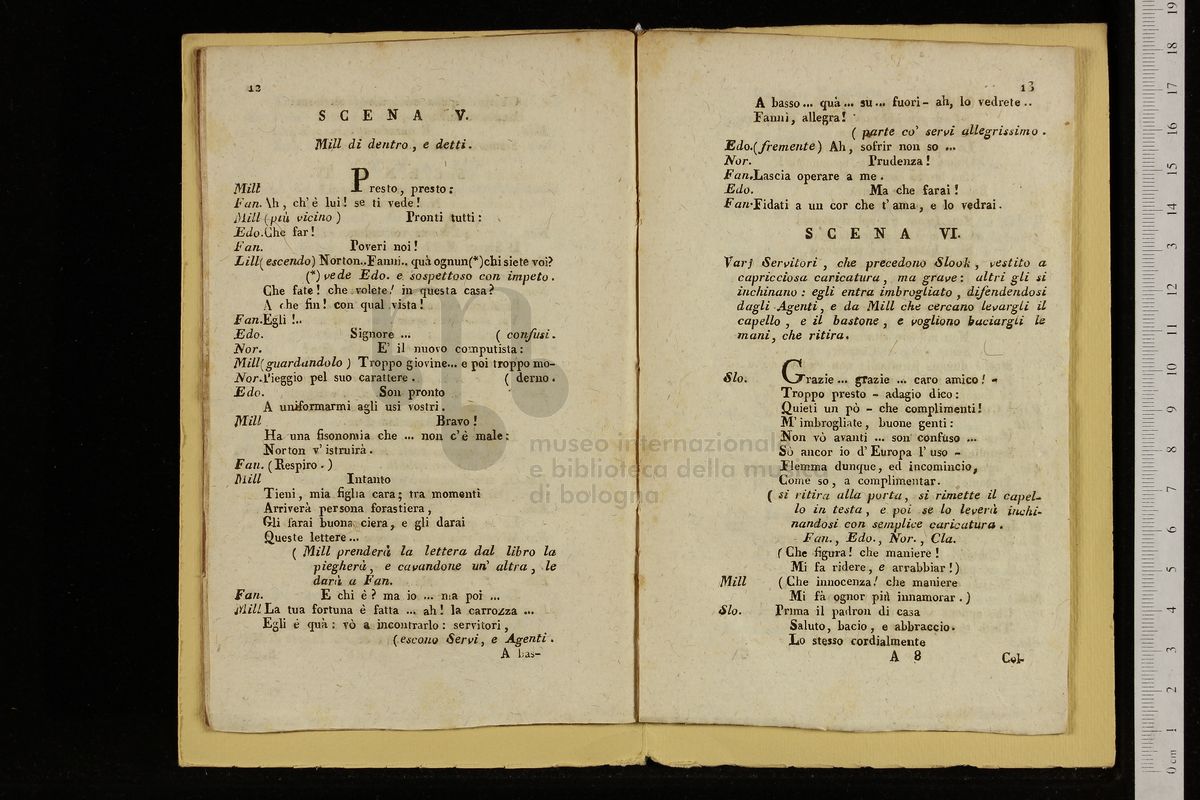 12
SCENA V.
Mill di dentro, e detti.
Mill Presto, presto:
Fan. Ah, ch'è lui! se ti vede!
Mill (più vicino) Pronti tutti:
Edo. Che far!
Fan. Poveri noi!
Lill (escendo) Norton.. Fanni.. quà ognun (*) chi siete voi?
(*) vede Edo. e sospettoso con impeto.
Che fate! che volete! in questa casa?
A che fin! con qual vista!
Fan. Egli!..
Edo. Signore ... (confusi.
Nor. E' il nuovo computista:
Mill (guardandolo) Troppo giovine... e poi troppo mo-
Nor. Pieggio pel suo carattere. (derno.
Edo. Son pronto
A uniformarmi agli usi vostri.
Mill Bravo!
Ha una fisonomia che ... non c'è male:
Norton v' istruirà.
Fan. (Respiro.)
Mill Intanto
Tieni, mia figlia cara; tra momenti
Arriverà persona forastiera,
Gli farai buona ciera, e gli darai
Queste lettere...
( Mill prenderà la lettera dal libro la
piegherà, e cavandone un' altra, le
darà a Fan.
Fan. E chi è? ma io ... ma poi ...
Mill La tua fortuna è fatta ... ah! la carrozza ...
Egli è quà: vò a incontrarlo: servitori,
(escono Servi, e Agenti.
A bas-
13
A basso... quà... su... fuori- ah, lo vedrete..
Fanni, allegra!
( parte co' servi allegrissimo.
Edo. (fremente) Ah, sofrir non so ...
Nor. Prudenza!
Fan. Lascia operare a me.
Edo. Ma che farai!
Fan. Fidati a un cor che t'ama, e lo vedrai.
SCENA VI.
Varj Servitori, che precedono Slook, vestito a
capricciosa caricatura, ma grave: altri gli si
inchinano: egli entra imbrogliato, difendendosi
dagli Agenti, e da Mill che cercano levargli il
capello, e il bastone, e vogliono baciargli le
mani, che ritira.
Slo. Grazie... grazie ... caro amico! -
Troppo presto - adagio dico:
Quieti un pò - che complimenti!
M' imbrogliate, buone genti:
Non vò avanti ... son confuso ...
Sò ancor io d' Europa l' uso -
Flemma dunque, ed incomincio,
Come so, a complimentar.
( si ritira alla porta, si rimette il capel-
lo in testa, e poi se lo leverà inchi-
nandosi con semplice caricatura.
Fan., Edo., Nor., Cla.
(Che figura! che maniere!
Mi fa ridere, e arrabbiar!)
Mill (Che innocenza! che maniere
Mi fà ognor più innamorar.)
Slo. Prima il padron di casa
Saluto, bacio, e abbraccio.
Lo stesso cordialmente
A 8 Col-
museo internazionale
e biblioteca della musica
di bologna
0 cm 1 2 3 4 5 6 7 8 9 10 11 12 13 14 15 16 17 18 19